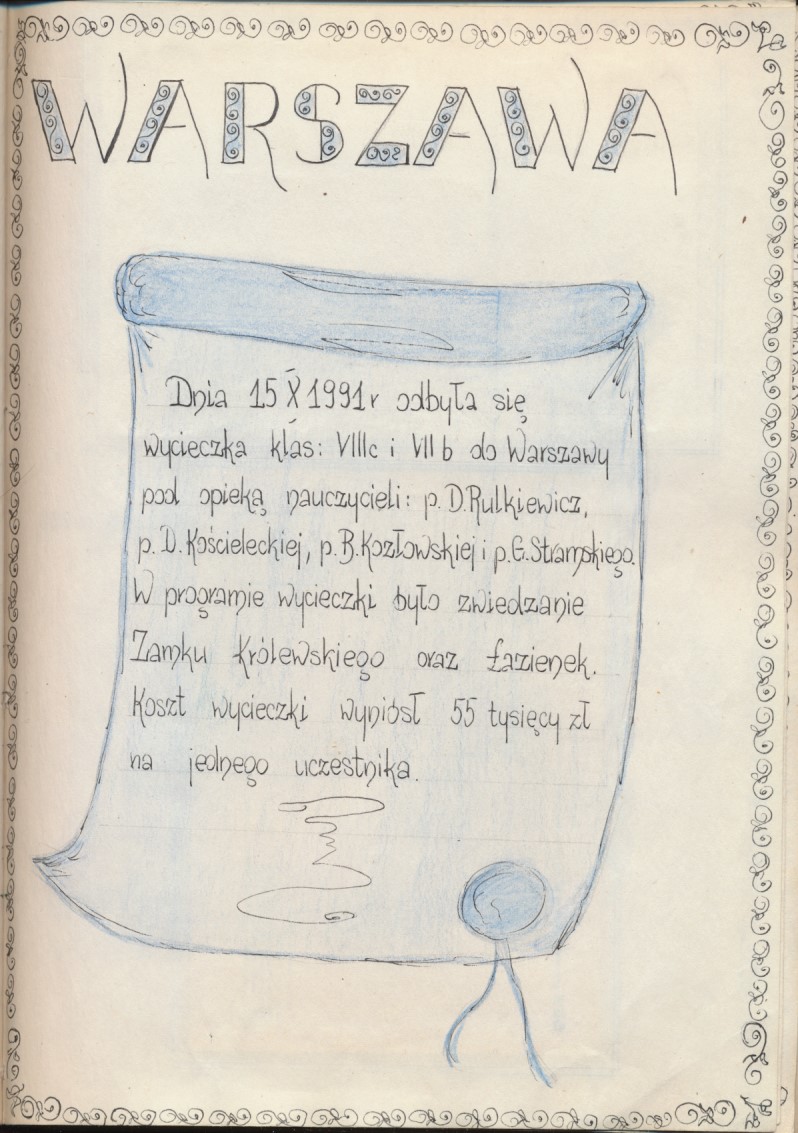 WARSZAWA
Dnia 15 X 1991r odbyła się
wycieczka klas: VIIIc i VII b do Warszawy
pod opieką nauczycieli: p. D. Rulkiewicz,
p. D. Kościeleckiej, p. B. Kozłowskiej i p. G. Stramskiego.
W programie wycieczki było zwiedzanie
Zamku Królewskiego oraz Łazienek.
Koszt wycieczki wyniósł 55 tysięcy zł
na jednego uczestnika.